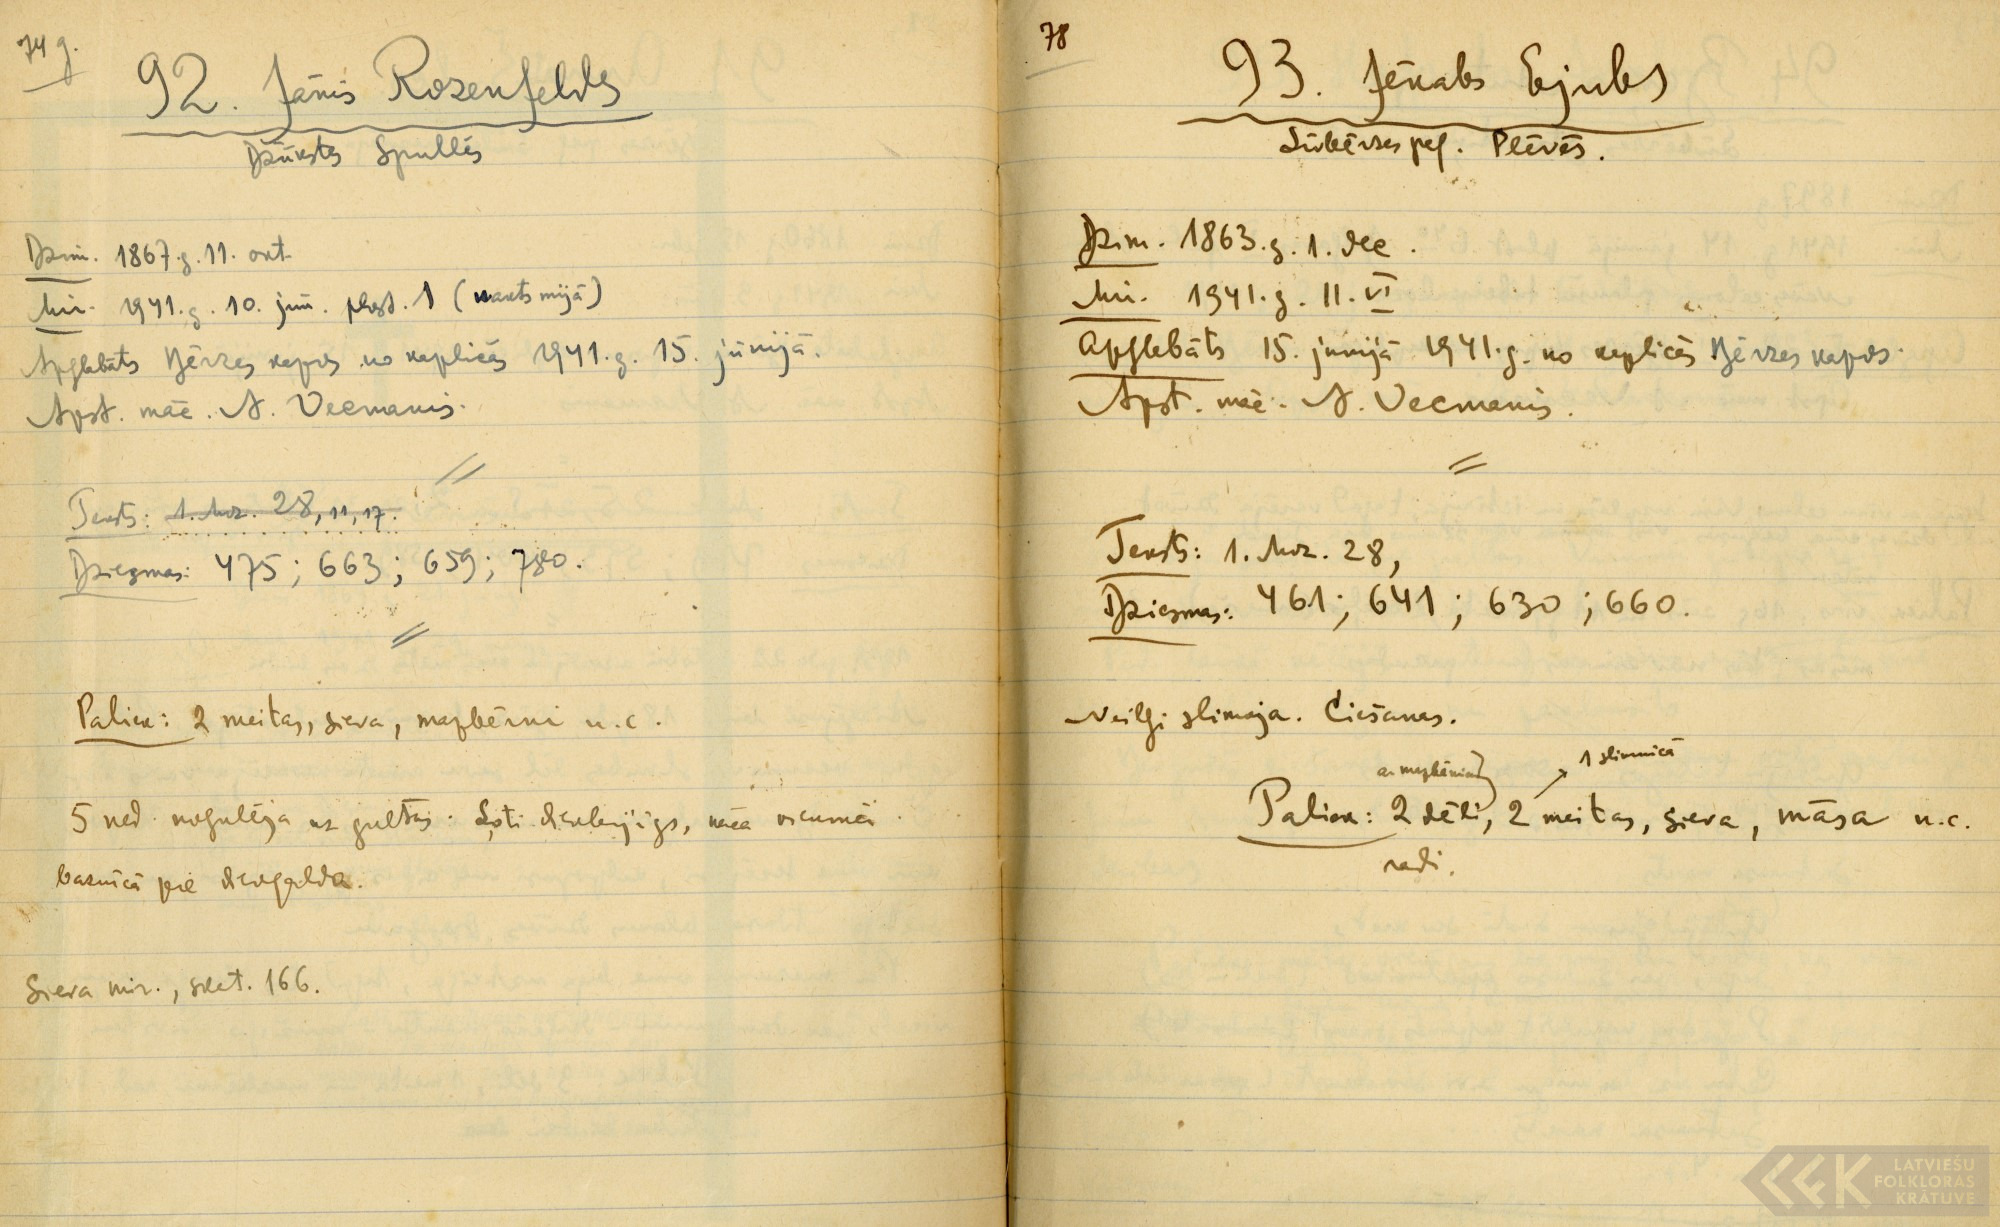 74 g.
92. Jānis Rozenfelds
Džūkstes Spullēs
Dzim. 1867.g. 11. okt.
Mir. 1941.g. 10. jūn. plkst. 1 (nakts mijā)
Apglabāts Bērzes kapos no kapličas 1941.g. 15. jūnijā.
Apst. māc. A. Vecmanis.
Teksts: 1. Moz. 28, 11, 17.
Dziesmas: 475; 663; 659; 780.
Paliek: 2 meitas, sieva, mazbērni u.c.
5 ned. nogulēja uz gultas. Ļoti dievbijīgs, nāca vienmēr
baznīcā pie dievgalda.
Sieva mir., skat. 166.
78
93. Jēkabs Ejubs
Līvbērzes pag. Plēvēs.
Dzim. 1863.g. 1. dec.
Mir. 1941.g. 11. VI
Apglabāts 15. jūnijā 1941.g. no kapličas Bērzes kapos.
Apst. māc. A. Vecmanis.
Teksts: 1. Moz. 28,
Dziesmas: 461; 641; 630; 660.
Neilgi slimoja. Ciešanas.
ar mazbērniem 1 slimnīcā
Paliek: 2 dēli, 2 meitas, sieva, māsa u.c.
radi.
LATVIEŠU
FOLKLORAS
KRĀTUVE